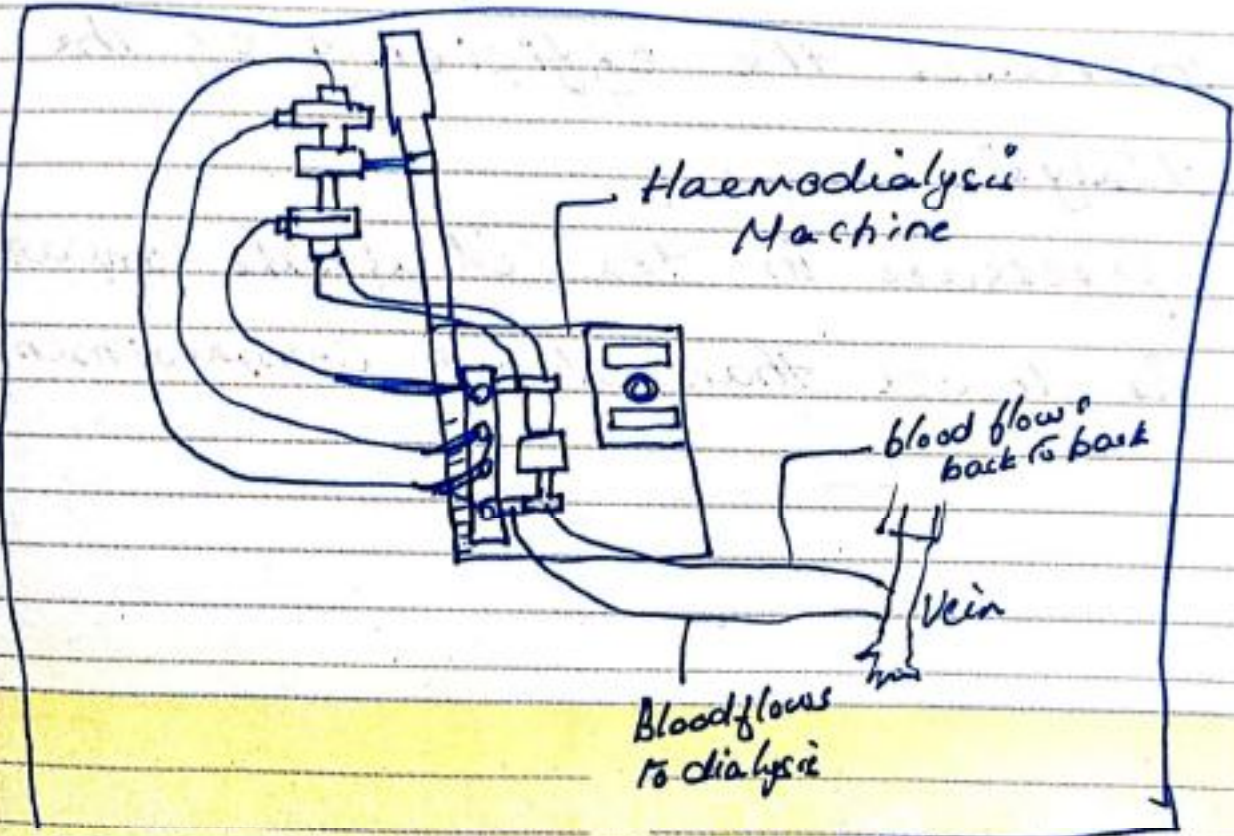 Haemodialysis
Machine
blood flows
back to back
Vein
Bloodflows
to dialysis